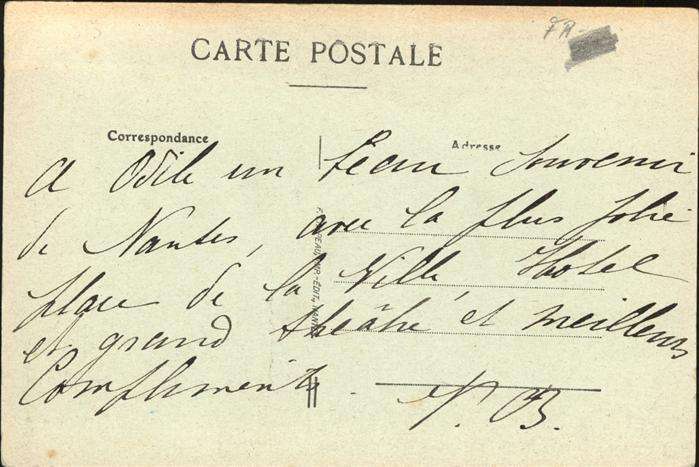 CARTE POSTALE
Correspondance
Adresse
A Odile un beau souvenir
de Nantes, avec la plus jolie
place de la Ville, Hotel
et grand théâtre et meilleurs
Compliments.
P. B.